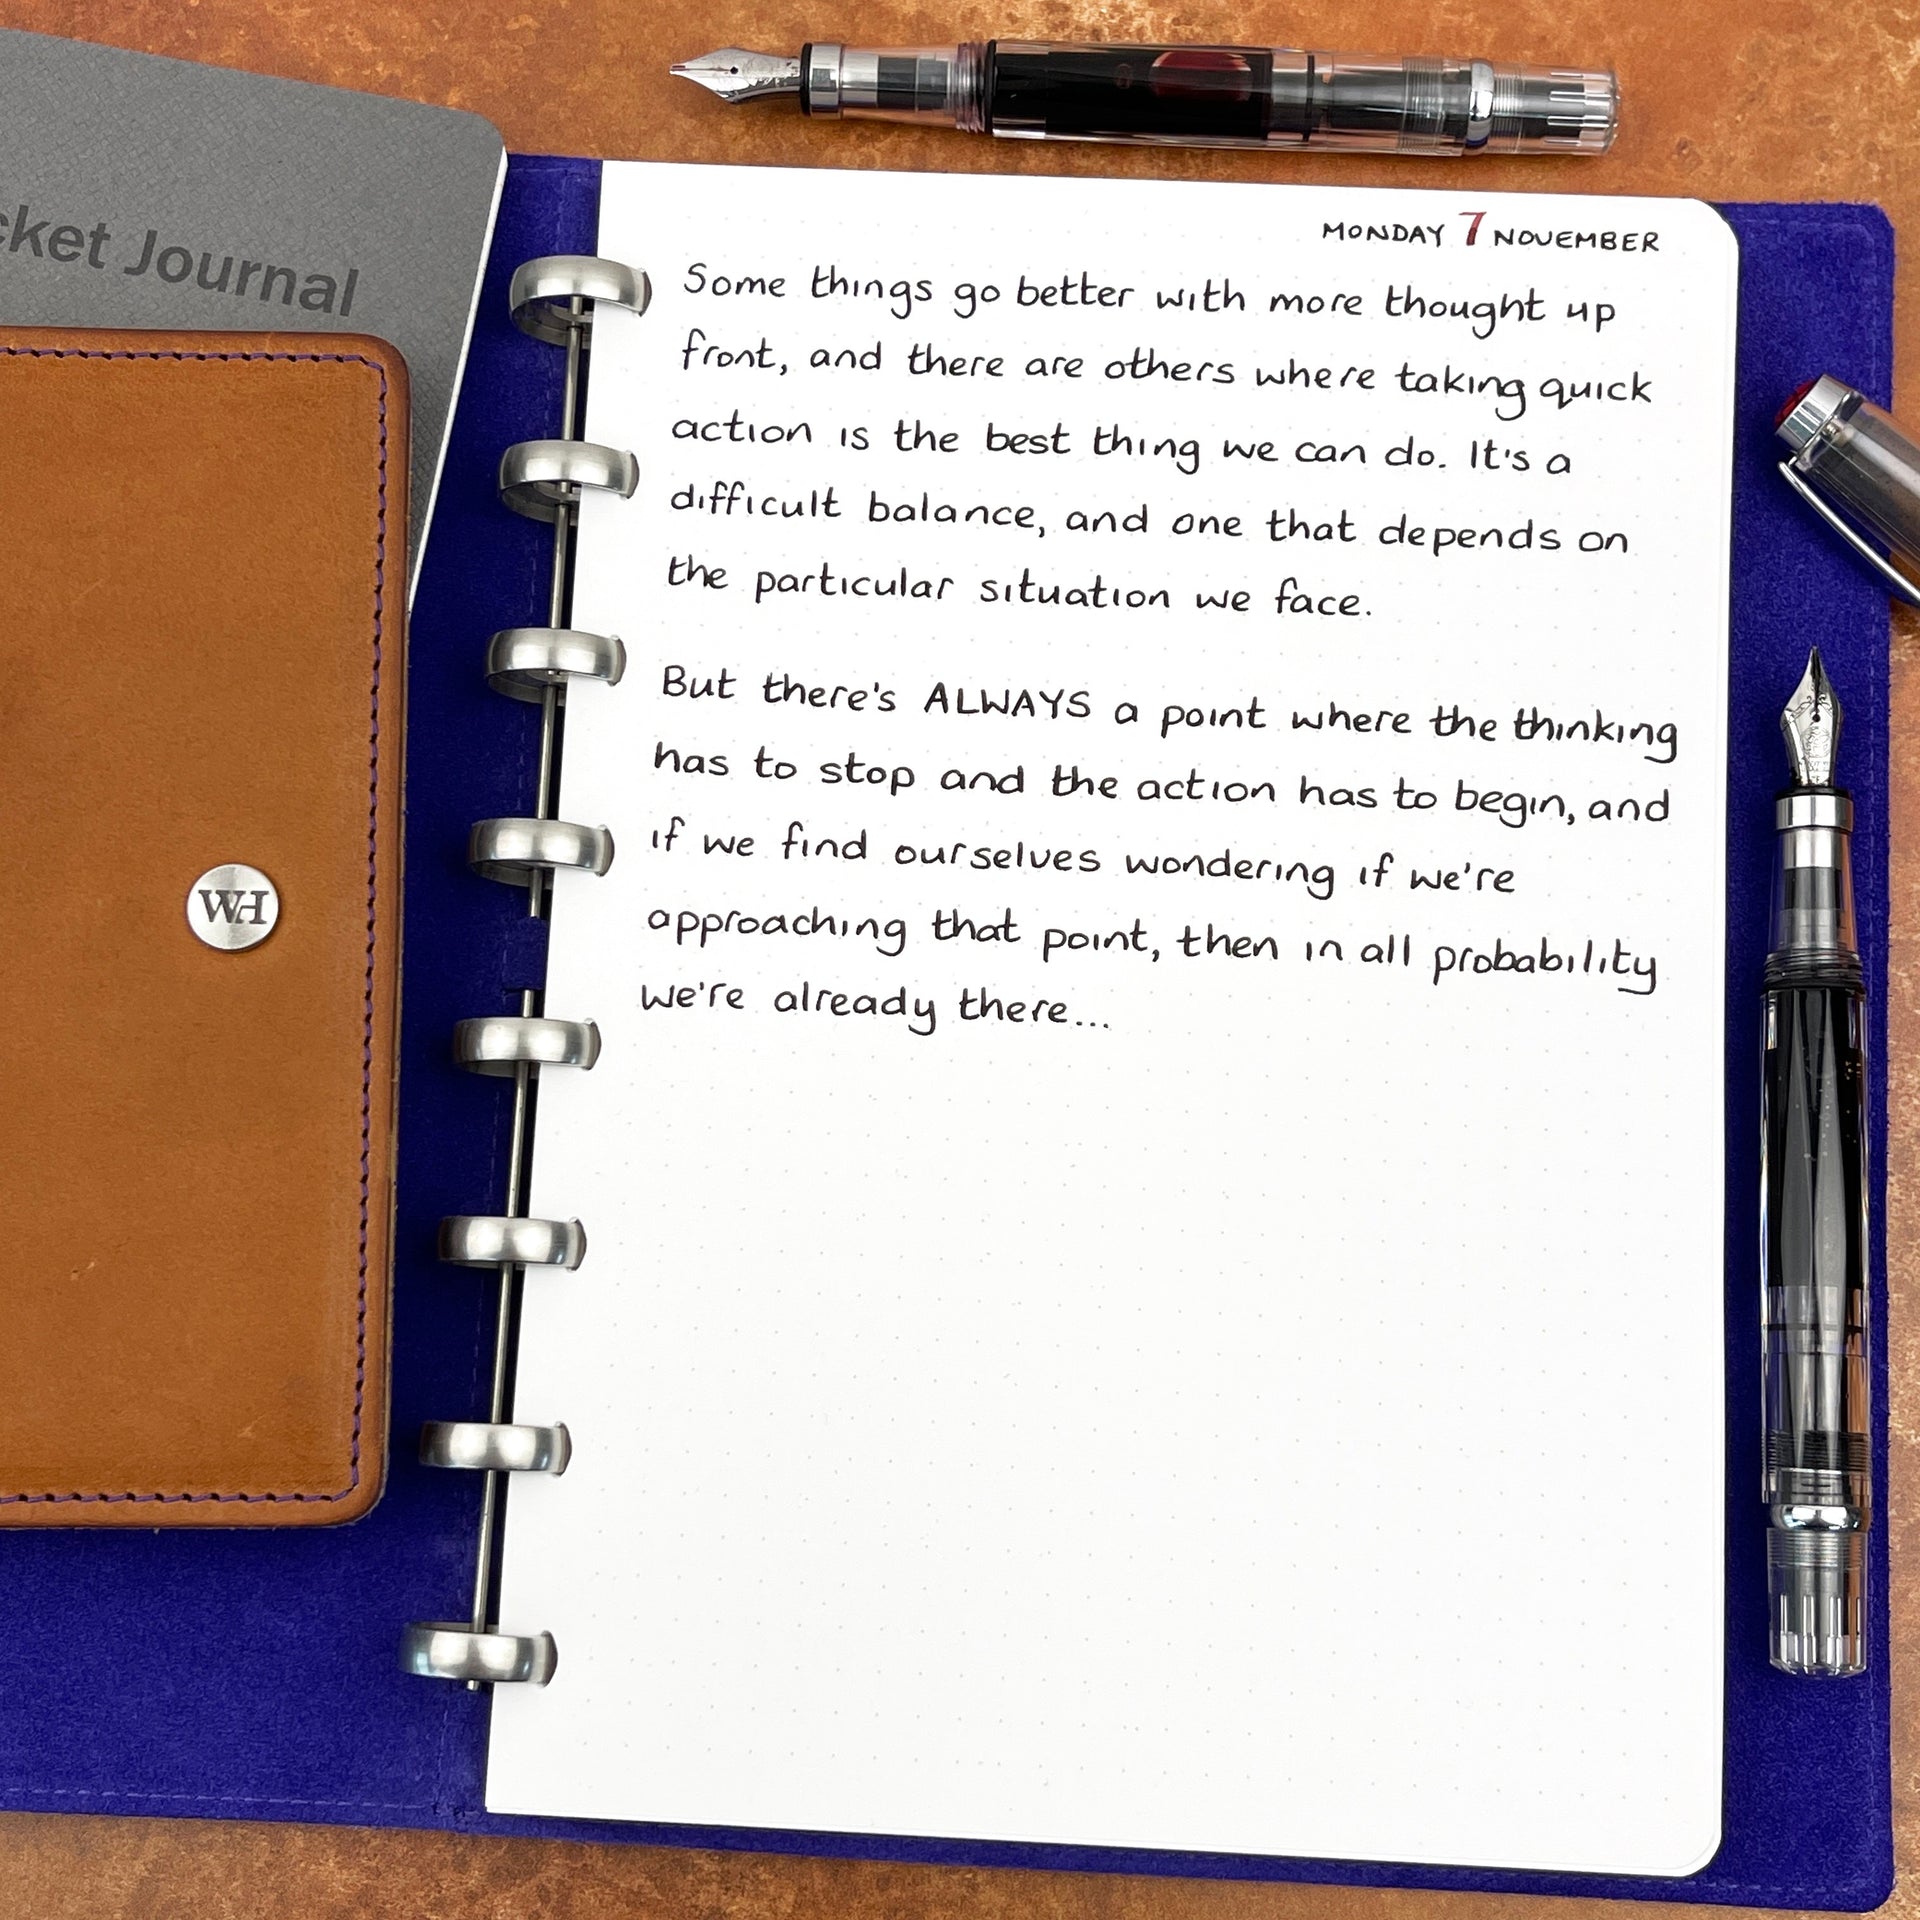 cket Journal
WH
MONDAY 7 NOVEMBER
Some things go better with more thought up
front, and there are others where taking quick
action is the best thing we can do. It's a
difficult balance, and one that depends on
the particular situation we face.
But there's ALWAYS a point where the thinking
has to stop and the action has to begin, and
if we find ourselves wondering if we're
approaching that point, then in all probability
we're already there...